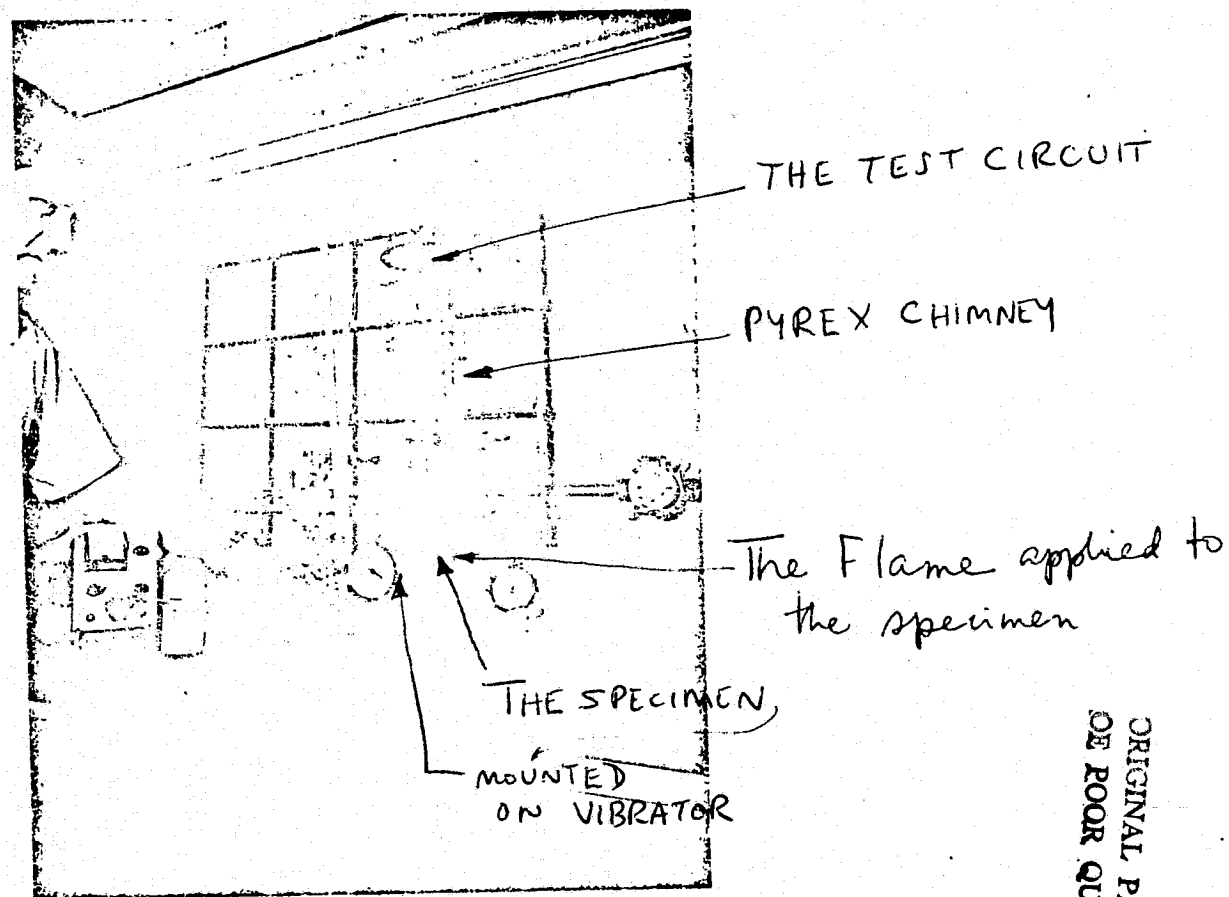 THE TEST CIRCUIT
PYREX CHIMNEY
The Flame applied to
the specimen
THE SPECIMEN,
MOUNTED
ON VIBRATOR
ORIGINAL
OF POOR